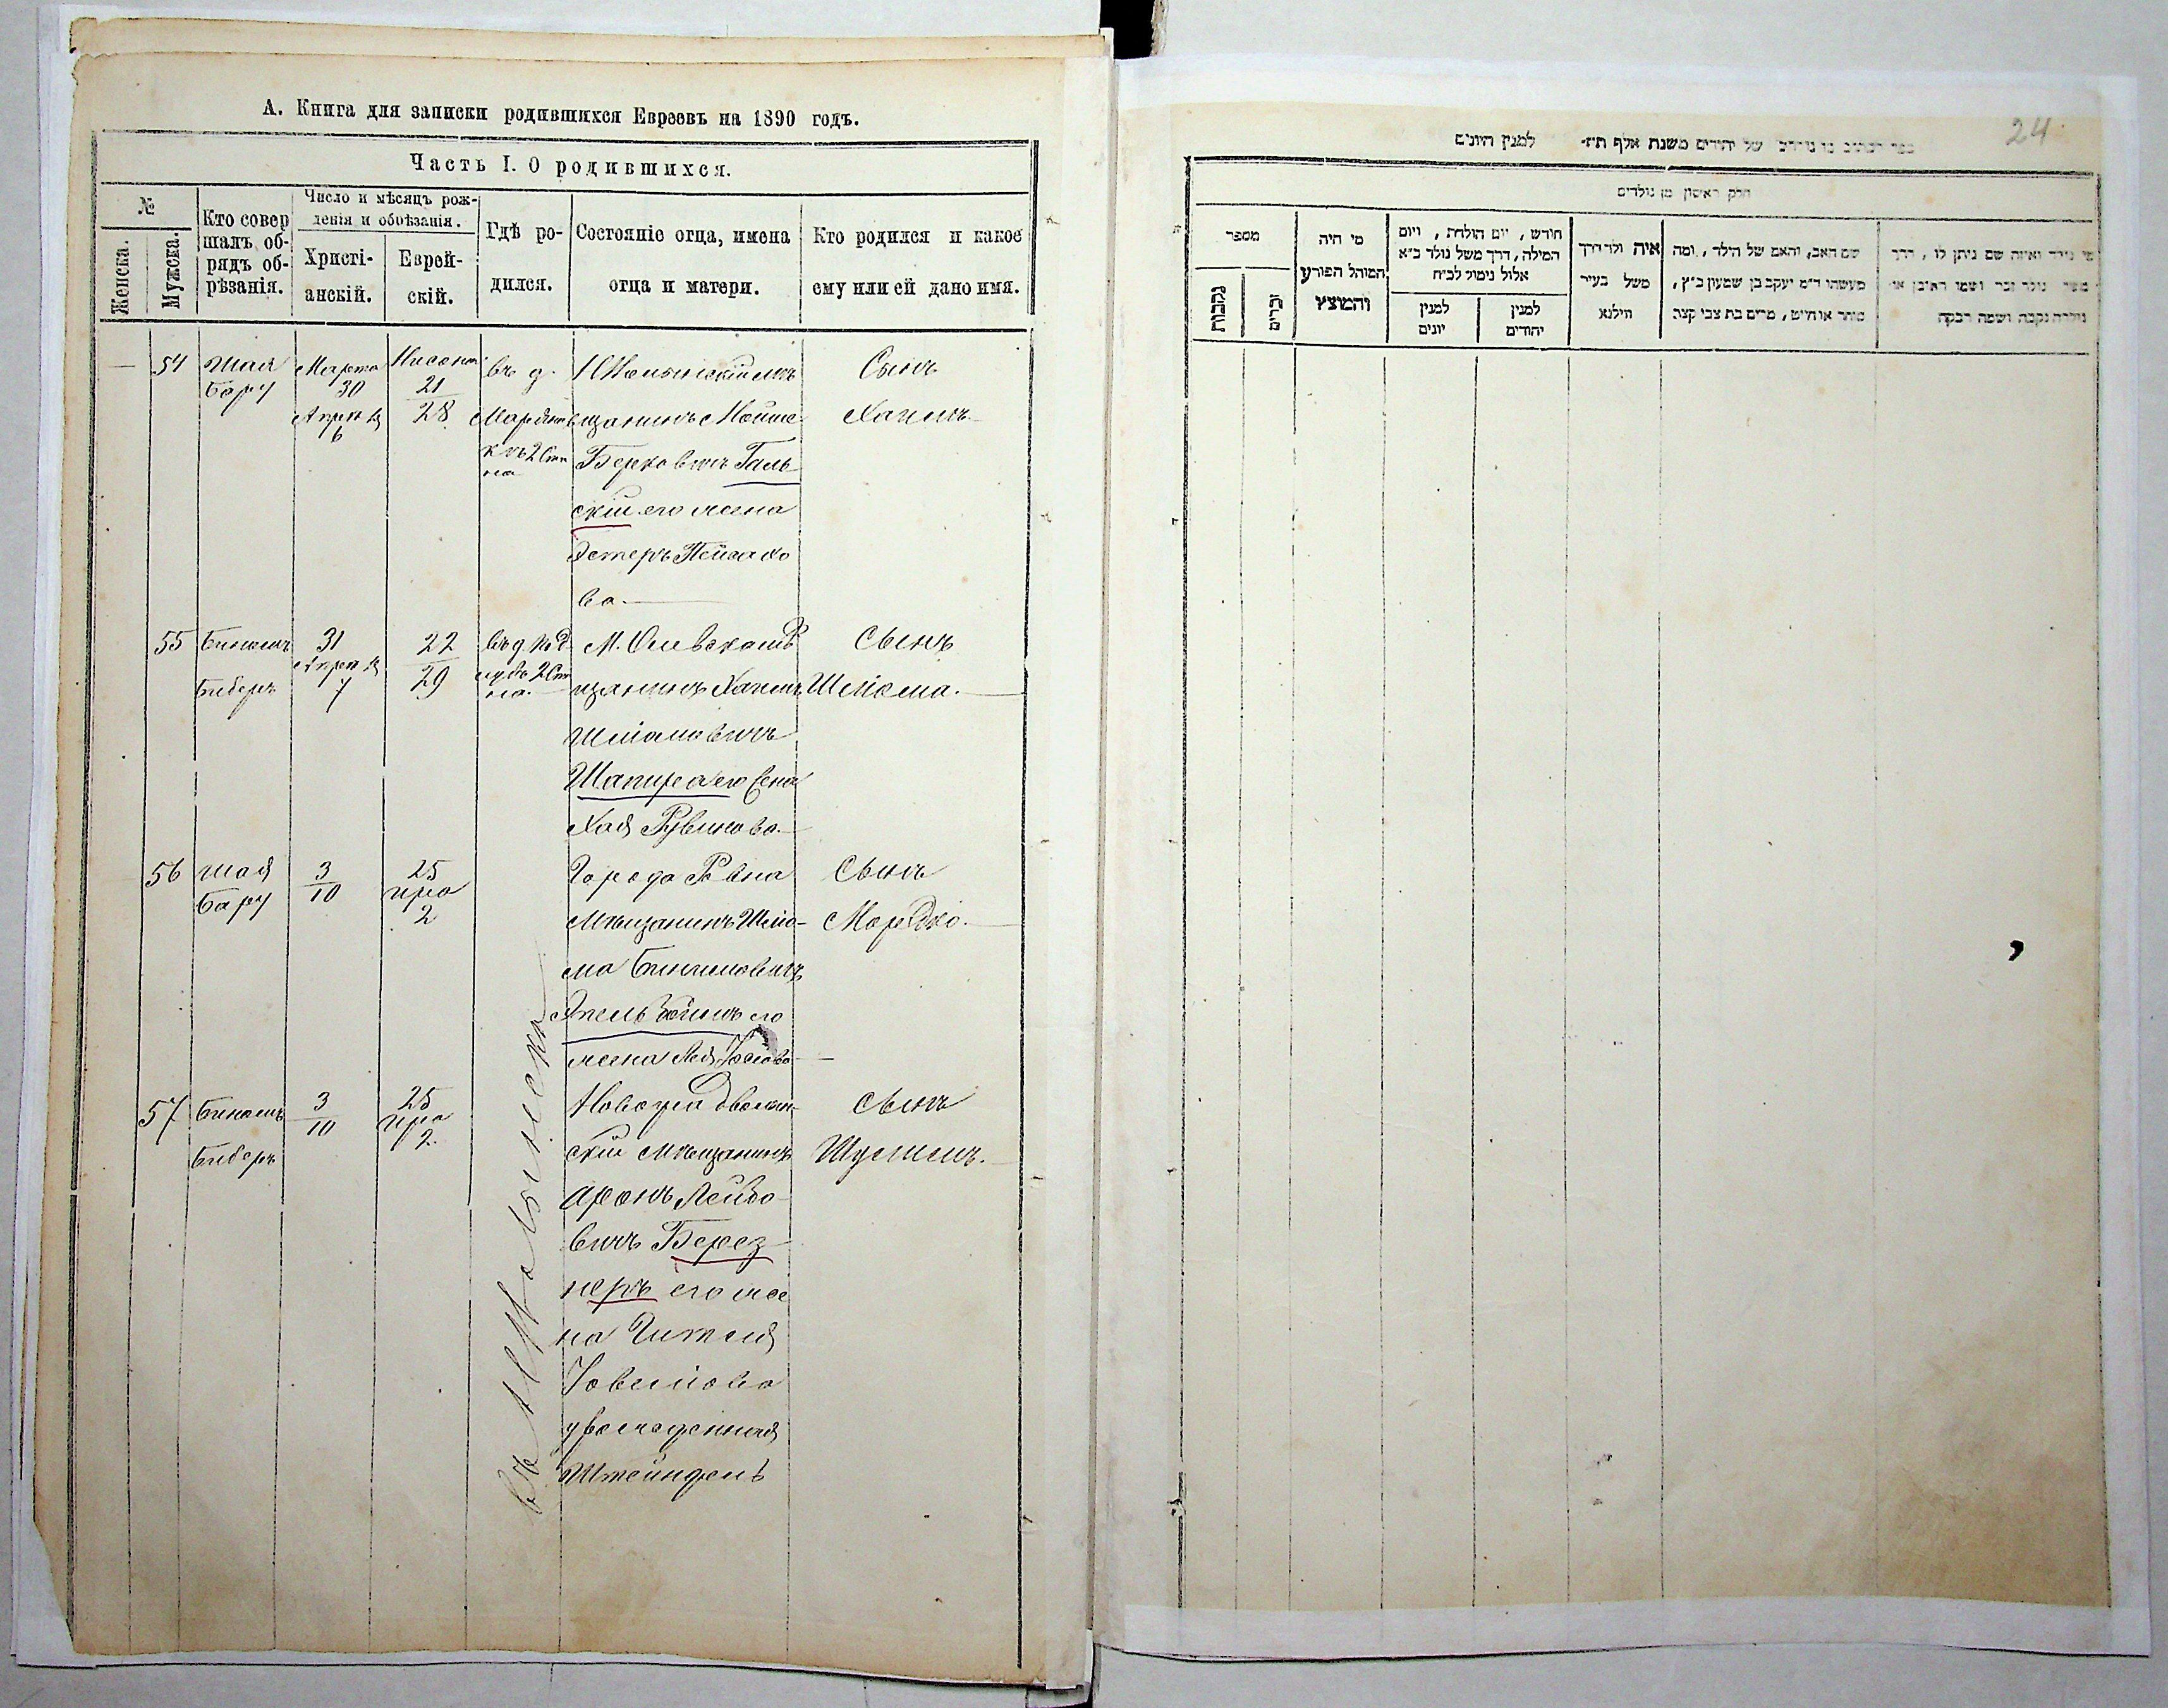 А. Книга для записки родившихся Евреевъ на 1890 годъ.
Часть I. О родившихся.
№
Женска.
Мужска.
Кто совер
шалъ об-
рядъ об-
рѣзанія.
Число и мѣсяцъ рож-
денія и обрѣзанія.
Христі-
анскій.
Еврей-
скій.
Гдѣ ро-
дился.
Состояніе отца, имена
отца и матери.
Кто родился и какое
ему или ей дано имя.
54
Шая
Бару
Марта
30
Апрѣля
6
Нисона
21
28
въ д.
щанинъ Мойше
Берковичъ Галь
скій его жена
Эстеръ
ва.
Сынъ
Хаимъ
55
Биномъ
Биберъ
31
Апрѣля
7
22
29
щанинъ Хаимъ
Шліомовичъ
Шапира его жена
Хая Рувинова
Сынъ
Шліома.
56
Шая
Бару
3
10
25
2
Города Ровна
Мѣщанинъ Шліо-
ма
его
жена
Сынъ
Мордко.
57
Биномъ
Биберъ
3
10
25
2
скій Мѣщанинъ
Аронъ Лейбо-
вичъ Берез
неръ его же
на Гителя
урожденная
Сынъ
24
למנין היונים
של יהודים משנת אלף תת-
חלק ראשון מן נולדים
מספר
נקבות
זכרים
מי היה
המוהל הפורע
והמוצץ
חודש, יום הולדת, ויום
המילה, דרך משל נולד כ״א
אלול נימול לכ״ח
למנין
יונים
למנין
יהודים
איה ולד דרך
משל בעיר
ווילנא
שם האב, והאם של הילד, ומה
מעשהו ד״מ יעקב בן שמעון כ״ץ,
סוחר או חייט, מרים בת צבי קצב
מי נולד ואיזה שם ניתן לו, דרך
משל נולד זכר ושמו ראובן או
נולדה נקבה ושמה רבקה